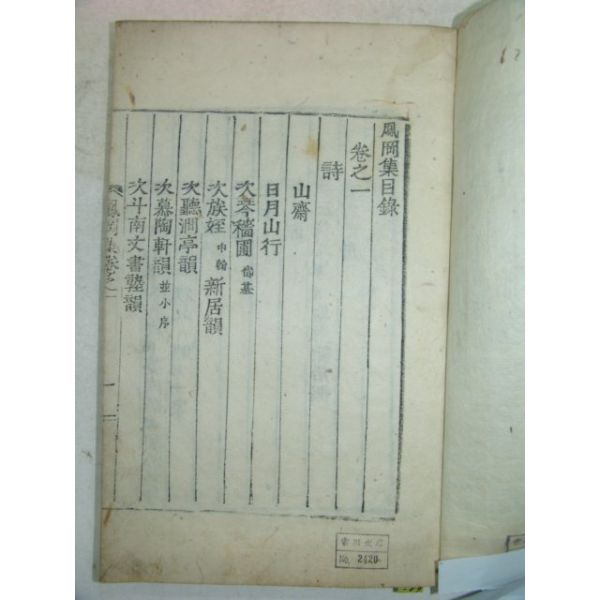 鳳岡集目錄
卷之一
詩
山齋
日月山行
次琴穡圃
次族姪 申翰 新居韻
次聽澗亭韻
次慕陶軒韻 並小序
次斗南文書塾韻
鳳岡集卷之一
No. 2420